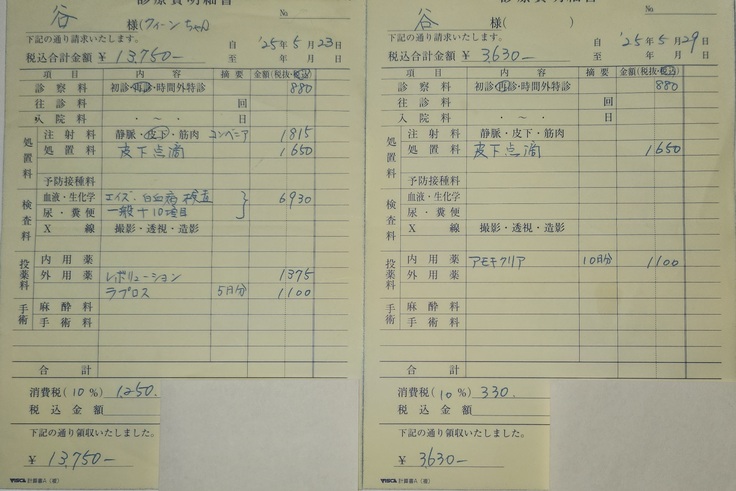 診療費明細書
№
谷 様(クィーンちゃん)
下記の通り請求いたします。
自 '25年5月23日
税込合計金額 ¥ 13,750-
至 年 月 日
項目 内容 摘要 金額(税抜・税込)
診察料 初診・再診・時間外特診 880
往診料 回
入院料 ・ ~ ・ 日
処置料 注射料 静脈・皮下・筋肉 コンベニア 1815
処置料 皮下点滴 1650
予防接種料
検査料 血液・生化学 エイズ・白血病検査 6930
尿・糞便 一般+10項目
X線 撮影・透視・造影
投薬料 内用薬
外用薬 レボリューション 1375
ラプロス 5日分 1100
手術 麻酔料
手術料
合計
消費税(10%) 1,250.
税込金額
下記の通り領収いたしました。
¥ 13,750-
計算書A(南)
診療費明細書
№
谷 様( )
下記の通り請求いたします。
自 '25年5月29日
税込合計金額 ¥ 3,630-
至 年 月 日
項目 内容 摘要 金額(税抜・税込)
診察料 初診・再診・時間外特診 880
往診料 回
入院料 ・ ~ ・ 日
処置料 注射料 静脈・皮下・筋肉
処置料 皮下点滴 1650
予防接種料
検査料 血液・生化学
尿・糞便
X線 撮影・透視・造影
投薬料 内用薬 アモキクリア 10日分 1100
外用薬
手術 麻酔料
手術料
合計
消費税(10%) 330.
税込金額
下記の通り領収いたしました。
¥ 3,630-